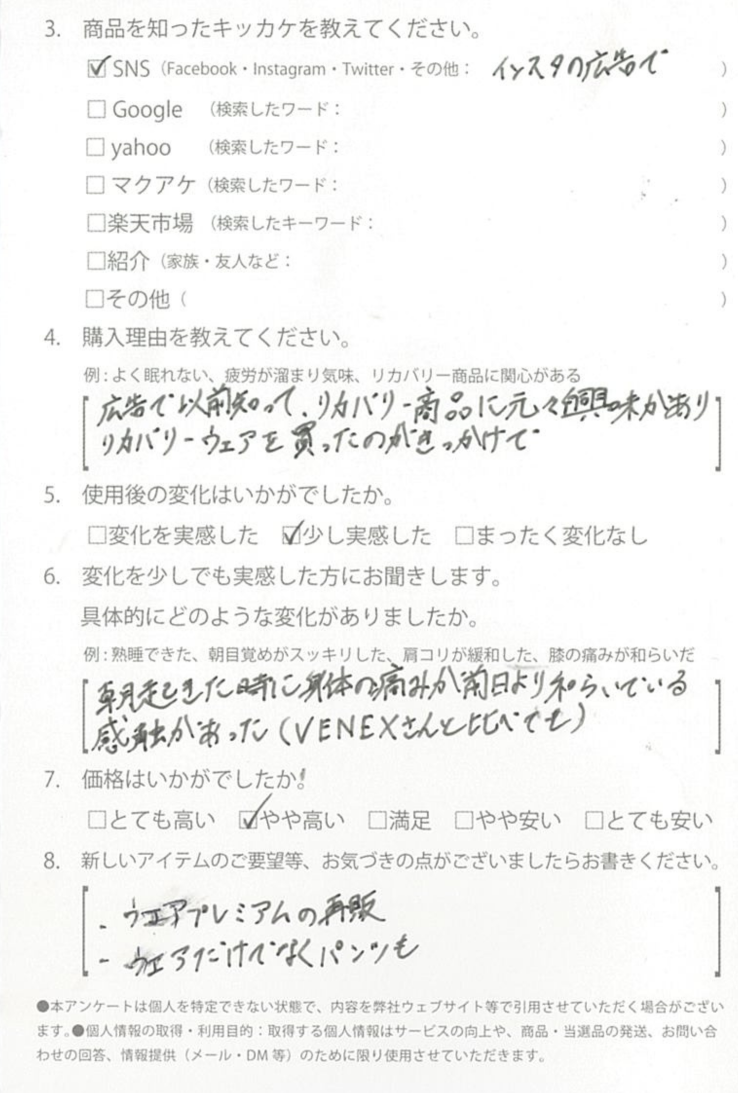 3. 商品を知ったキッカケを教えてください。
☑ SNS（Facebook・Instagram・Twitter・その他： インスタの広告で ）
□ Google （検索したワード： ）
□ yahoo （検索したワード： ）
□ マクアケ（検索したワード： ）
□楽天市場 （検索したキーワード： ）
□紹介（家族・友人など： ）
□その他（ ）
4. 購入理由を教えてください。
例：よく眠れない、疲労が溜まり気味、リカバリー商品に関心がある
広告で以前知って、リカバリー商品に元々興味があり
リカバリーウェアを買ったのがきっかけで
5. 使用後の変化はいかがでしたか。
□変化を実感した ☑少し実感した □まったく変化なし
6. 変化を少しでも実感した方にお聞きします。
具体的にどのような変化がありましたか。
例：熟睡できた、朝目覚めがスッキリした、肩コリが緩和した、膝の痛みが和らいだ
朝起きた時に身体の痛みが前日より和らいでいる
感触があった（VENEXさんと比べても）
7. 価格はいかがでしたか。
□とても高い ☑やや高い □満足 □やや安い □とても安い
8. 新しいアイテムのご要望等、お気づきの点がございましたらお書きください。
- ウェアプレミアムの再販
- ウェアだけでなくパンツも
●本アンケートは個人を特定できない状態で、内容を弊社ウェブサイト等で引用させていただく場合がござい
ます。●個人情報の取得・利用目的：取得する個人情報はサービスの向上や、商品・当選品の発送、お問い合
わせの回答、情報提供（メール・DM 等）のために限り使用させていただきます。